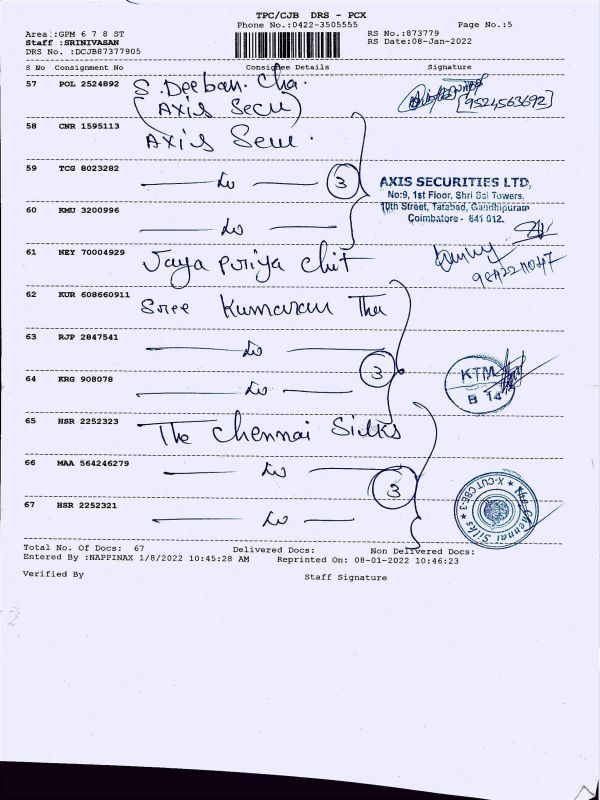 TPC/CJB DRS - PCX
Phone No.:0422-3505555 Page No.:5
Area :GPM 6 7 8 ST RS No.:873779
Staff :SRINIVASAN RS Date:08-Jan-2022
DRS No. :DCJB87377905
S No Consignment No Consignee Details Signature
57 POL 2524892 S. Deeban. Cha.
(AXIS Secu) [9524563692]
58 CNR 1595113 AXIS Secu.
59 TCG 8023282 3
AXIS SECURITIES LTD,
No:9, 1st Floor, Shri Sai Towers,
10th Street, Tatabad, Gandhipuram
Coimbatore - 641 012.
60 KMU 3200996
61 NEY 70004929 Jaya priya chit
62 KUR 608660911 Sree Kumaran Tha
63 RJP 2847541 3
64 KRG 908078
KTM
B 14
65 HSR 2252323 The Chennai Silks
66 MAA 564246279 3
67 HSR 2252321
The Chennai Silks ★ X-CUT CBE-3 ★
Total No. Of Docs: 67 Delivered Docs: Non Delivered Docs:
Entered By :NAPPINAX 1/8/2022 10:45:28 AM Reprinted On: 08-01-2022 10:46:23
Verified By Staff Signature